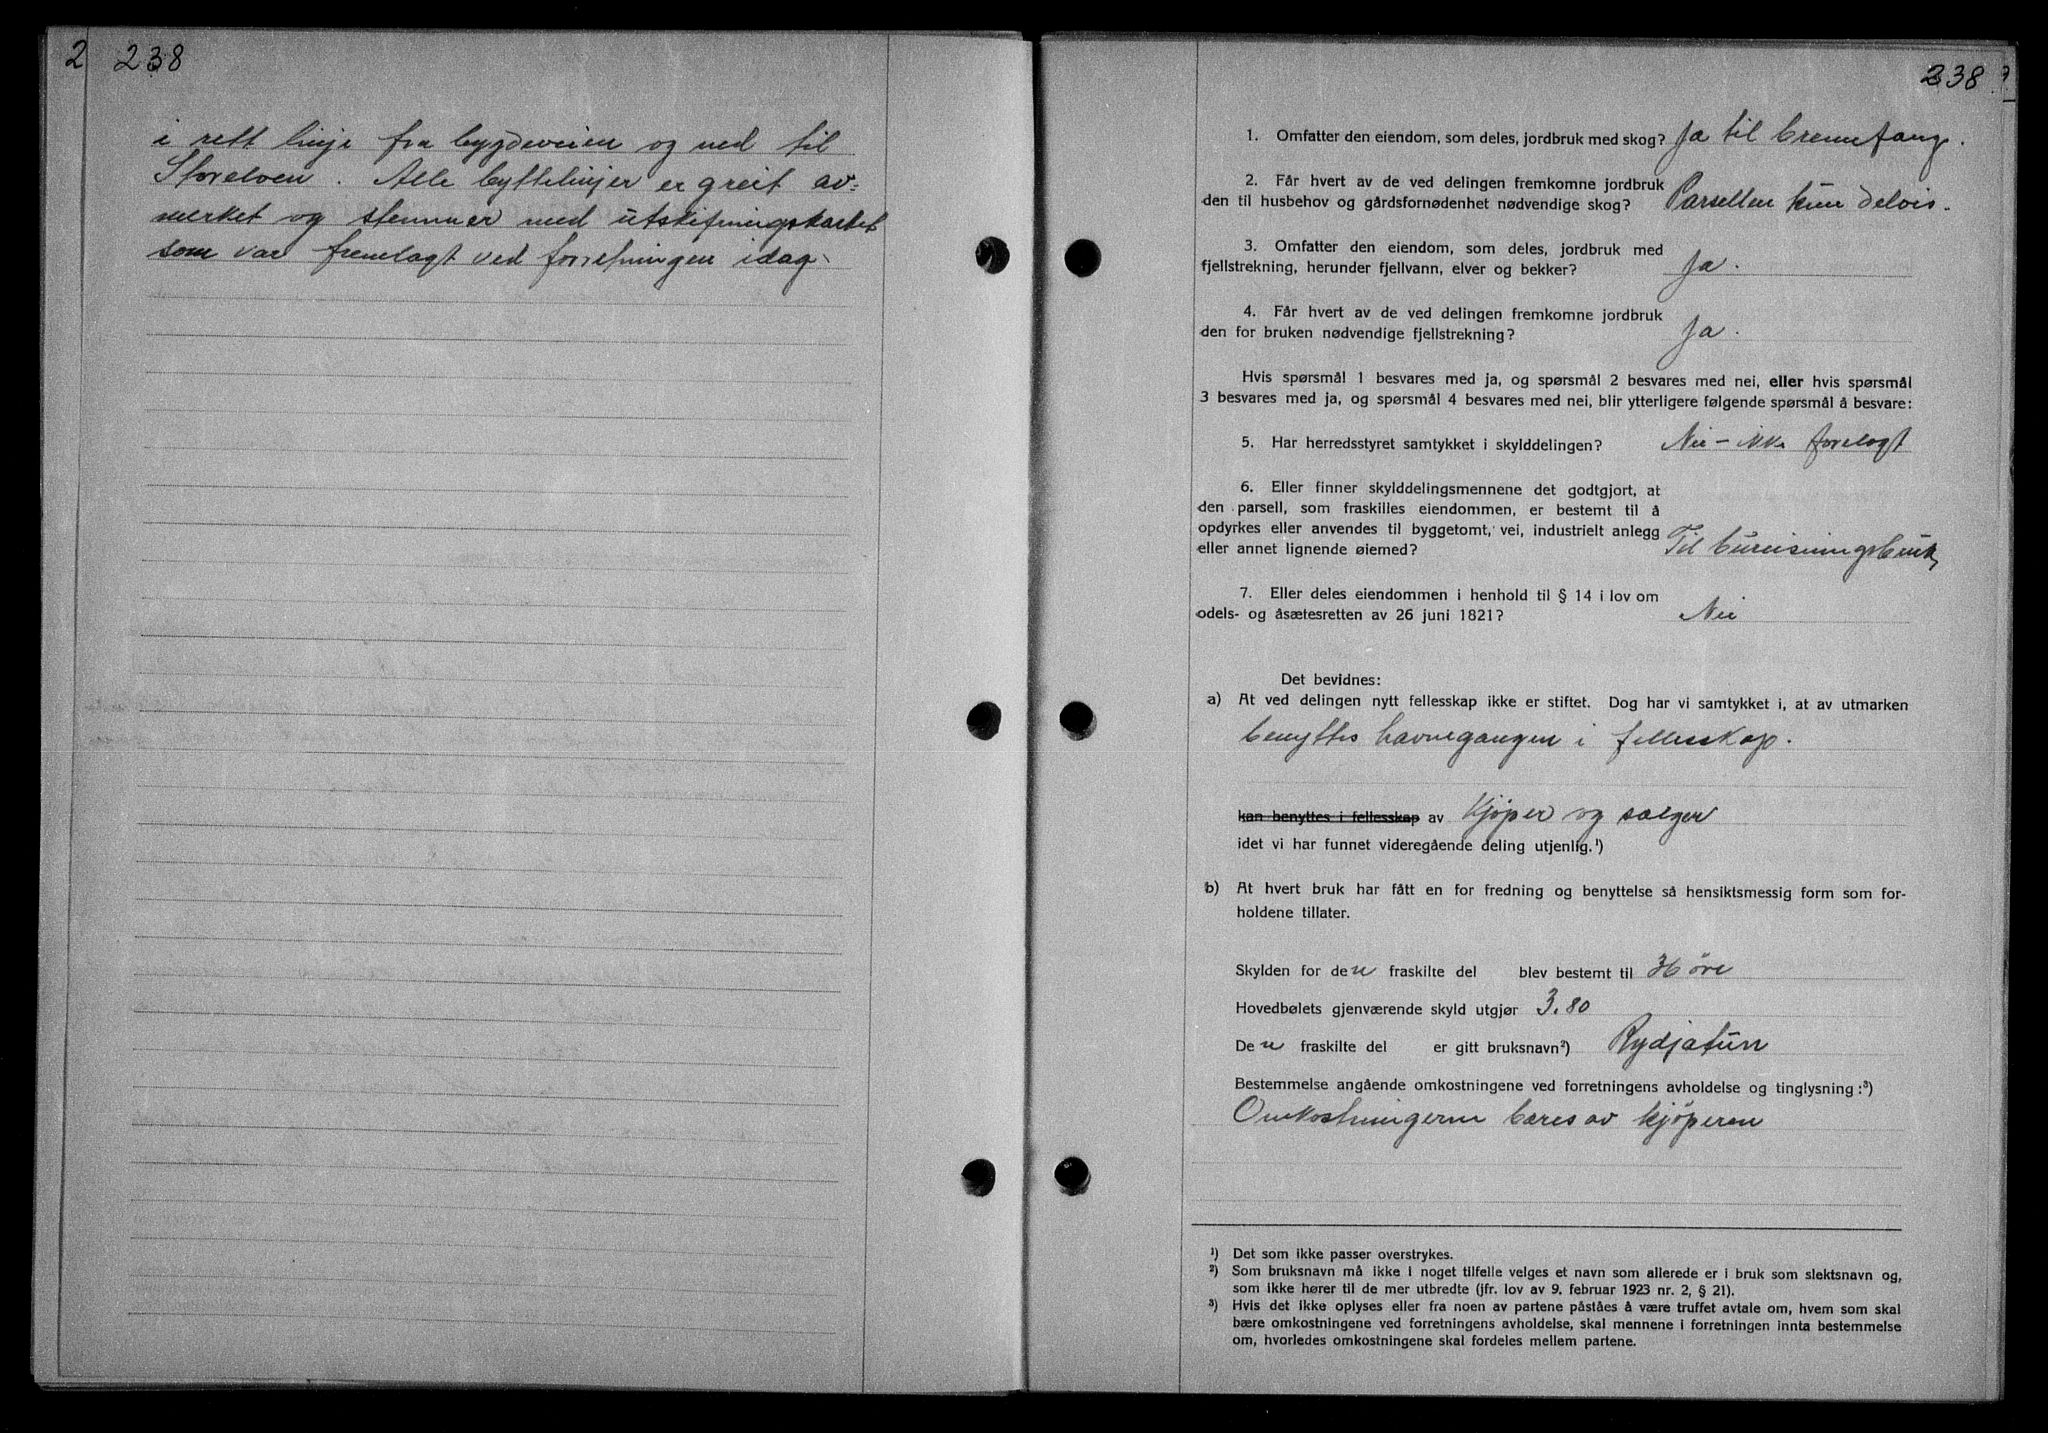 2 238
i rett linje fra bygdeveien og ned til
Storelven. Alle byttelinjer er greit av=
merket og stemmer med utskiftningskartet
som var fremlagt ved forretningen idag.
238
1. Omfatter den eiendom, som deles, jordbruk med skog? Ja til brennefang.
2. Får hvert av de ved delingen fremkomne jordbruk
den til husbehov og gårdsfornødenhet nødvendige skog? Parsellen kun delvis.
3. Omfatter den eiendom, som deles, jordbruk med
fjellstrekning, herunder fjellvann, elver og bekker? Ja.
4. Får hvert av de ved delingen fremkomne jordbruk
den for bruken nødvendige fjellstrekning? Ja.
Hvis spørsmål 1 besvares med ja, og spørsmål 2 besvares med nei, eller hvis spørsmål
3 besvares med ja, og spørsmål 4 besvares med nei, blir ytterligere følgende spørsmål å besvare:
5. Har herredsstyret samtykket i skylddelingen? Nei - ikke forelagt
6. Eller finner skylddelingsmennene det godtgjort, at
den parsell, som fraskilles eiendommen, er bestemt til å
opdyrkes eller anvendes til byggetomt, vei, industrielt anlegg
eller annet lignende øiemed? Til bureisningsbruk
7. Eller deles eiendommen i henhold til § 14 i lov om
odels- og åsætesretten av 26 juni 1821? Nei
Det bevidnes:
a) At ved delingen nytt fellesskap ikke er stiftet. Dog har vi samtykket i, at av utmarken
benyttes havnegangen i fellesskap.
kan benyttes i fellesskap av Kjøper og sælger
idet vi har funnet videregående deling utjenlig.¹)
b) At hvert bruk har fått en for fredning og benyttelse så hensiktsmessig form som for-
holdene tillater.
Skylden for den fraskilte del blev bestemt til 36 øre
Hovedbølets gjenværende skyld utgjør 3.80
Den fraskilte del er gitt bruksnavn²) Rydjatun
Bestemmelse angående omkostningene ved forretningens avholdelse og tinglysning:³)
Omkostningerne bæres av kjøperen
¹) Det som ikke passer overstrykes.
²) Som bruksnavn må ikke i noget tilfelle velges et navn som allerede er i bruk som slektsnavn og,
som ikke hører til de mer utbredte (jfr. lov av 9. februar 1923 nr. 2, § 21).
³) Hvis det ikke oplyses eller fra noen av partene påståes å være truffet avtale om, hvem som skal
bære omkostningene ved forretningens avholdelse, skal mennene i forretningen innta bestemmelse
om, hvorledes omkostningene skal fordeles mellem partene.